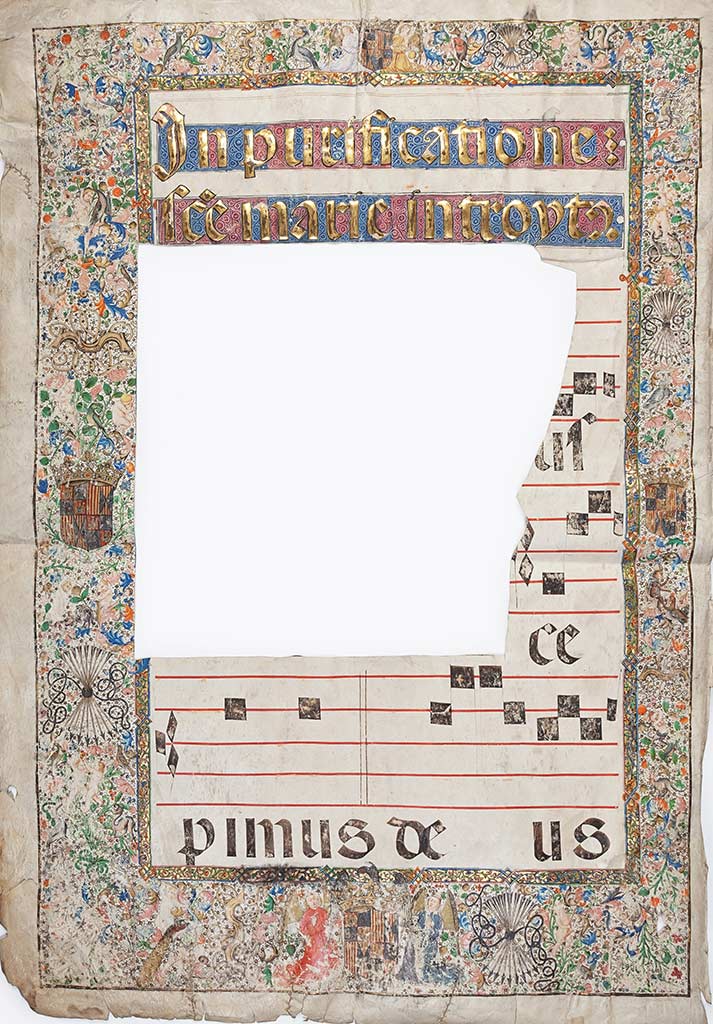 In purificatione:
sc̄e marie introytꝫ
us
ce
pimus de us